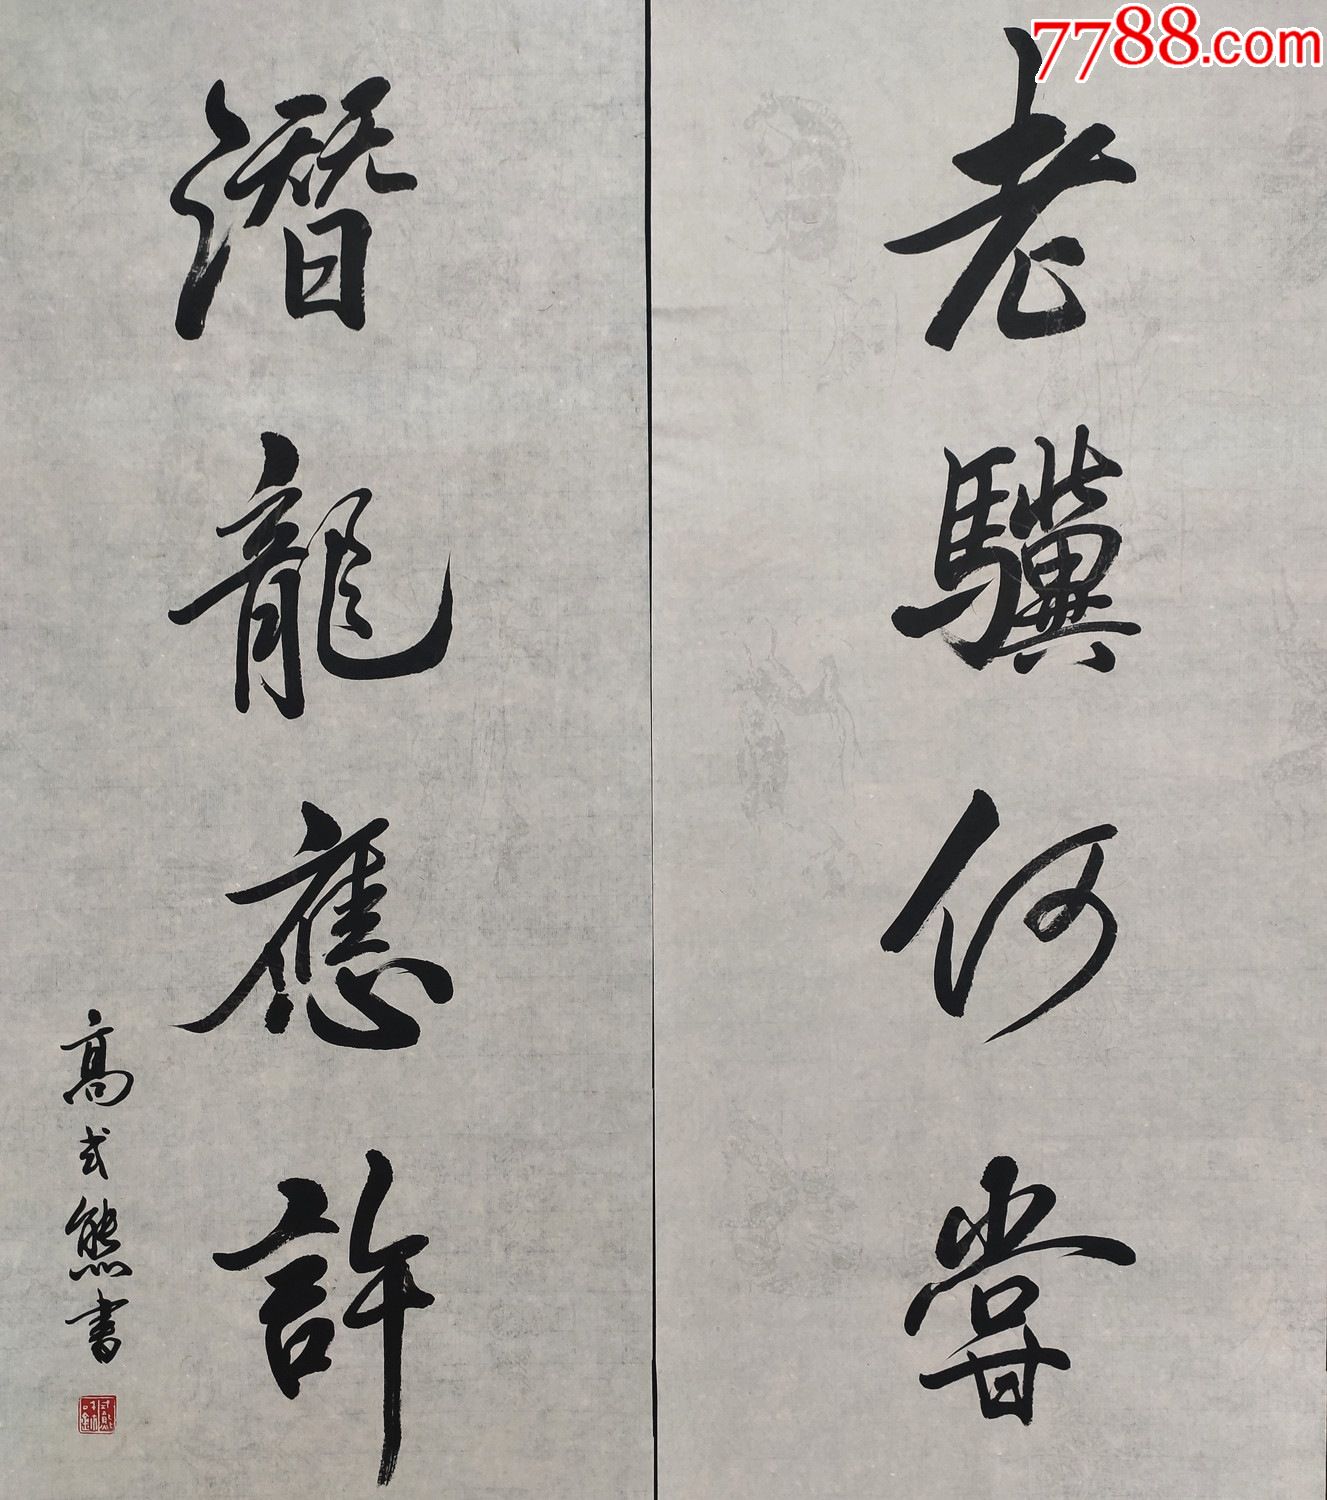 7788.com
老驥何嘗
潛龍應許
高式熊書